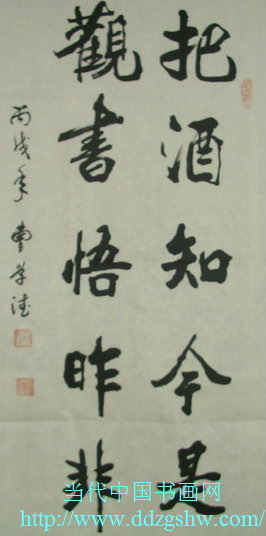 把酒知今是
觀書悟昨非
丙戌年
当代中国书画网
http://www.ddzgshw.com/